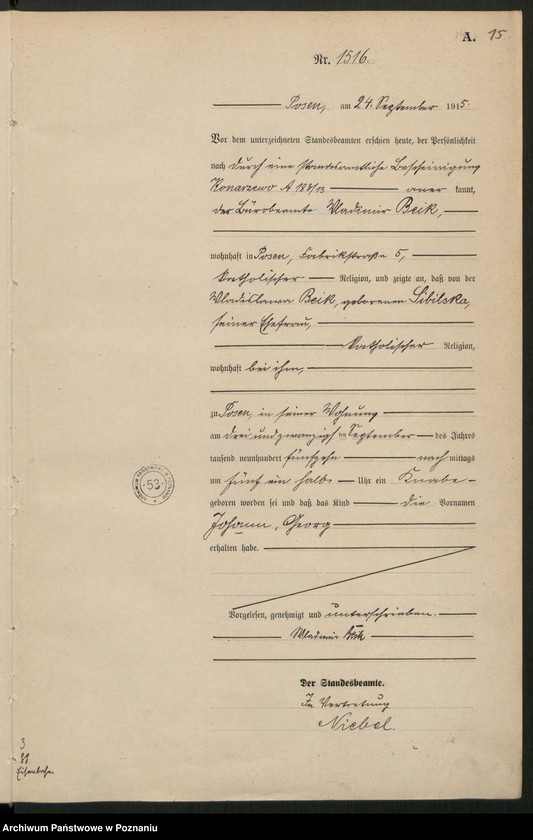 A. 15.
Nr. 1516.
Posen, am 24. September 1915.
Vor dem unterzeichneten Standesbeamten erschien heute, der Persönlichkeit
nach durch eine standesamtliche Bescheinigung
Konarzewo A kannt,
der Bürobeamte Wladimir Beik,
wohnhaft in Posen, Fabrikstraße 5,
katholischer Religion, und zeigte an, daß von der
Wladislawa Beik, geborenen Sibilska,
seiner Ehefrau,
katholischer Religion,
wohnhaft bei ihm,
zu Posen, in seiner Wohnung
am dreiundzwanzigsten September des Jahres
tausend neunhundert fünfzehn nachmittags
um fünf ein halb Uhr ein Knabe
geboren worden sei und daß das Kind die Vornamen
Johann, Georg
erhalten habe.
Vorgelesen, genehmigt und unterschrieben.
Wladimir Beik
Der Standesbeamte.
In Vertretung
Niebel.
53
3
88
Archiwum Państwowe w Poznaniu